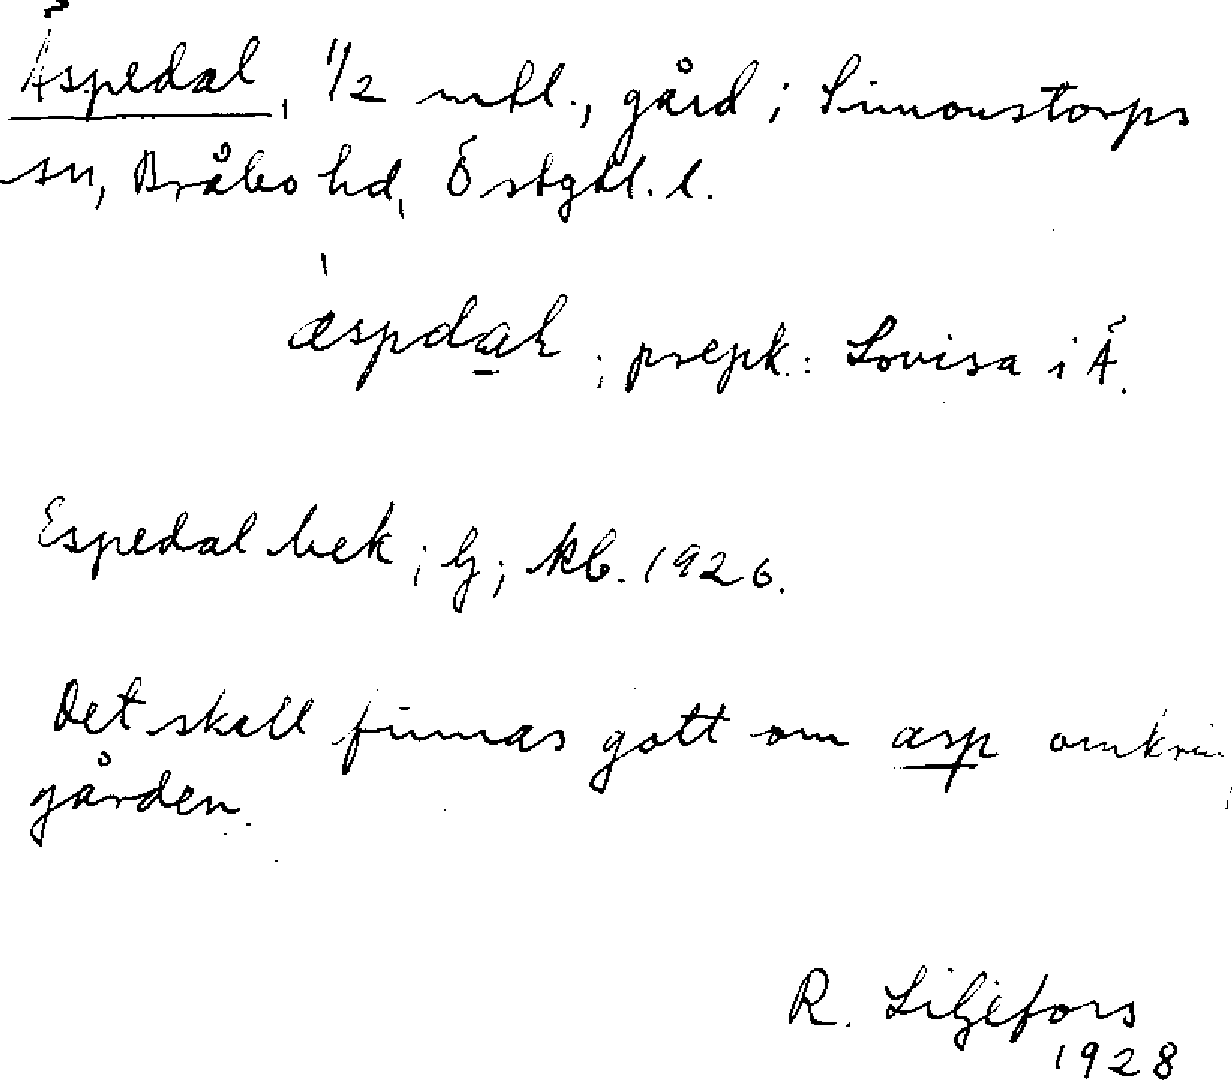 Äspedal, 1/2 mtl., gård; Simonstorps
sn, Bråbo hd, Östgtl. l.
æspdaɫ; prepk.: Lovisa i Ä.
Espedal bek; kb. 1926.
Det skall finnas gott om asp omkri
gården.
R. Liljefors
1928